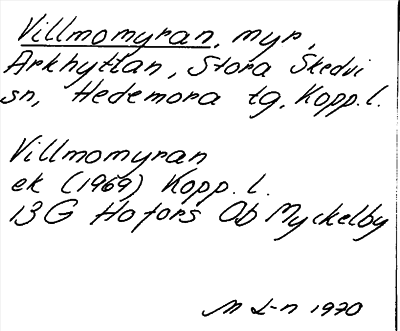 Villmomyran, myr,
Arkhyttan, Stora Skedvi
sn, Hedemora tg, Kopp. l.
Villmomyran
ek (1969) Kopp. l.
13 G Hofors Ob Myckelby
M L-n 1970